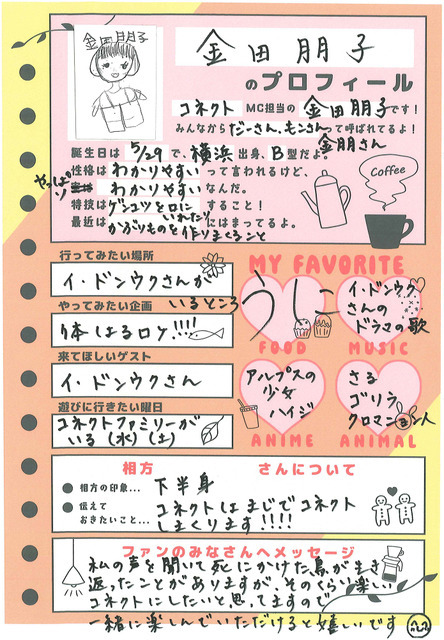 金田朋子
金田朋子
のプロフィール
コネクト MC担当の 金田朋子 です!
みんなから だーさん、もンさん、 って呼ばれてるよ!
金朋さん
誕生日は 5/29 で、横浜 出身、B 型だよ。
性格は わかりやすい って言われるけど、
やっぱ
わかりやすい なんだ。
特技は ゲンコツを口に すること!
いれたり
最近は かぶりものを作りまくること にはまってるよ。
Coffee
行ってみたい場所
イ・ドンウクさんが
いるところ
やってみたい企画
体はるロケ!!!!
来てほしいゲスト
イ・ドンウクさん
遊びに行きたい曜日
コネクトファミリーが
いる(水)(土)
MY FAVORITE
うに
FOOD
イ・ドンウク
さんの
ドラマの歌
MUSIC
アルプスの
少女
ハイジ
ANIME
さる
ゴリラ
クロマニョン人
ANIMAL
相方 さんについて
相方の印象... 下半身
伝えて
おきたいこと... コネクトはまじでコネクト
しまくります!!!!
ファンのみなさんへメッセージ
私の声を聞いて死にかけた鳥が生き
返ったことがありますが、そのくらい楽しい
コネクトにしたいと思ってますので
一緒に楽しんでいただけると嬉しいです